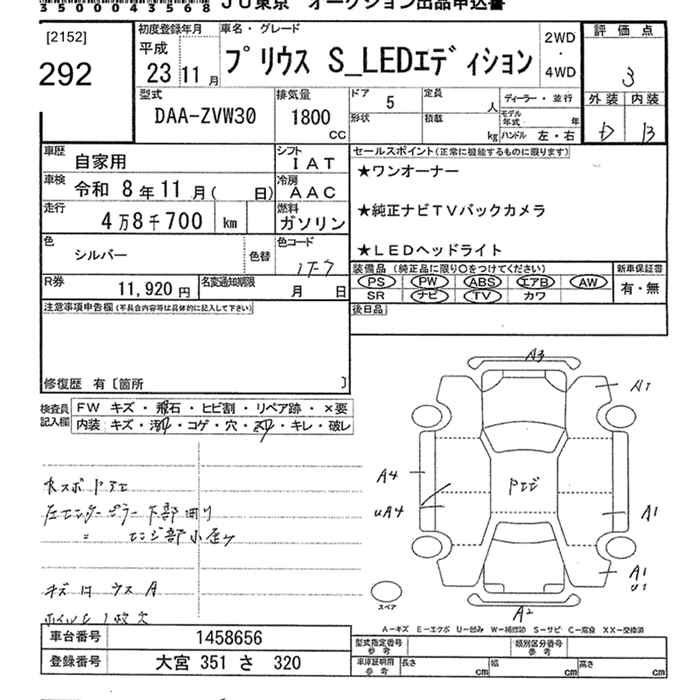 3500043568 JU東京 オークション出品申込書
[2152]
292
初度登録年月
平成
23 11 月
車名・グレード
プリウス S_LEDエディション
2WD
・
4WD
評価点
3
外装 内装
D B
型式
DAA-ZVW30
排気量
1800
CC
ドア 5
定員 人
形状
積載 kg
ディーラー・並行
モデル年式 年
ハンドル 左・右
車歴
自家用
シフト
IAT
車検
令和 8年11月( 日)
冷房
AAC
走行
4万8千700 km
燃料
ガソリン
色
シルバー
色替
色コード
1F7
R券
11,920 円
名変通知期限
月 日
セールスポイント(正常に機能するものに限ります)
★ワンオーナー
★純正ナビTVバックカメラ
★LEDヘッドライト
装備品(純正品に限り○をつけてください)
PS PW ABS エアB AW
SR ナビ TV カワ
新車保証書
有・無
後日品
注意事項申告欄(不具合内容等は具体的に記入して下さい)
修復歴 有〔箇所 〕
検査員
記入欄
FW キズ・飛石・ヒビ割・リペア跡・×要
内装・キズ・汚れ・コゲ・穴・スレ・キレ・破レ
左センターピラー下部曲り
〃 ヒンジ部小歪ミ
キズ ウス A
A3
A1
A4
UA4
A1
A1
U1
A2
スペア
A-キズ E-エクボ U-凹み W-補修跡 S-サビ C-腐食 XX-交換済
車台番号 1458656
登録番号 大宮 351 さ 320
型式指定番号
参考
類別区分番号
参考
車庫証明用
参考
長さ cm
幅 cm
高さ cm